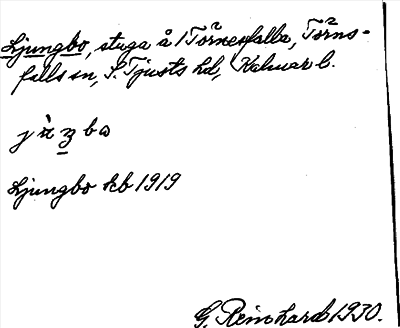 Ljungbo, stuga å 1 Törnesfalla, Törns-
falls sn, S. Tjusts hd, Kalmar l.
Ljungbo kb 1919
G. Reinhard 1930.